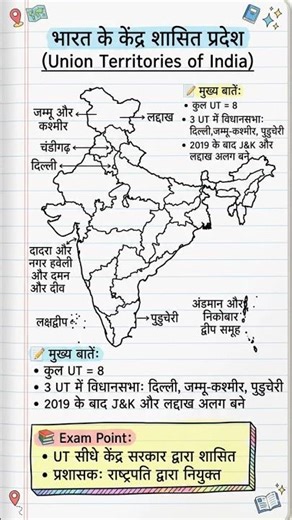 भारत के केंद्र शासित प्रदेश
(Union Territories of India)
📝 मुख्य बातें:
• कुल UT = 8
• 3 UT में विधानसभाः
दिल्ली,जम्मू-कश्मीर, पुडुचेरी
• 2019 के बाद J&K और
लद्दाख अलग बने
जम्मू और
कश्मीर
लद्दाख
चंडीगढ़
दिल्ली
दादरा और
नगर हवेली
और दमन
और दीव
लक्षद्वीप
पुडुचेरी
अंडमान और
निकोबार
द्वीप समूह
📝 मुख्य बातें:
• कुल UT = 8
• 3 UT में विधानसभाः दिल्ली, जम्मू-कश्मीर, पुडुचेरी
• 2019 के बाद J&K और लद्दाख अलग बने
📚 Exam Point:
• UT सीधे केंद्र सरकार द्वारा शासित
• प्रशासकः राष्ट्रपति द्वारा नियुक्त